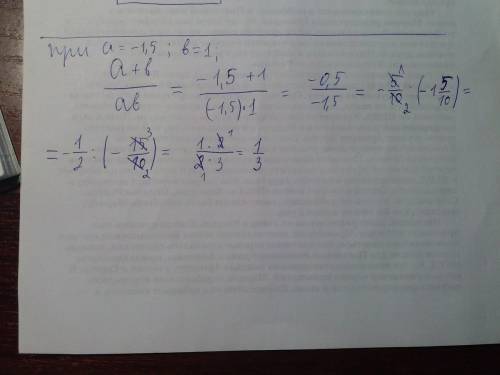 при a = -1,5 ; в = 1,
a+в / aв = -1,5 + 1 / (-1,5)·1 = -0,5 / -1,5 = - 5/10 1 2 : (-1 5/10) =
= - 1/2 : (- 15/10 3 2) = 1·2 1 / 2·3 1 = 1/3